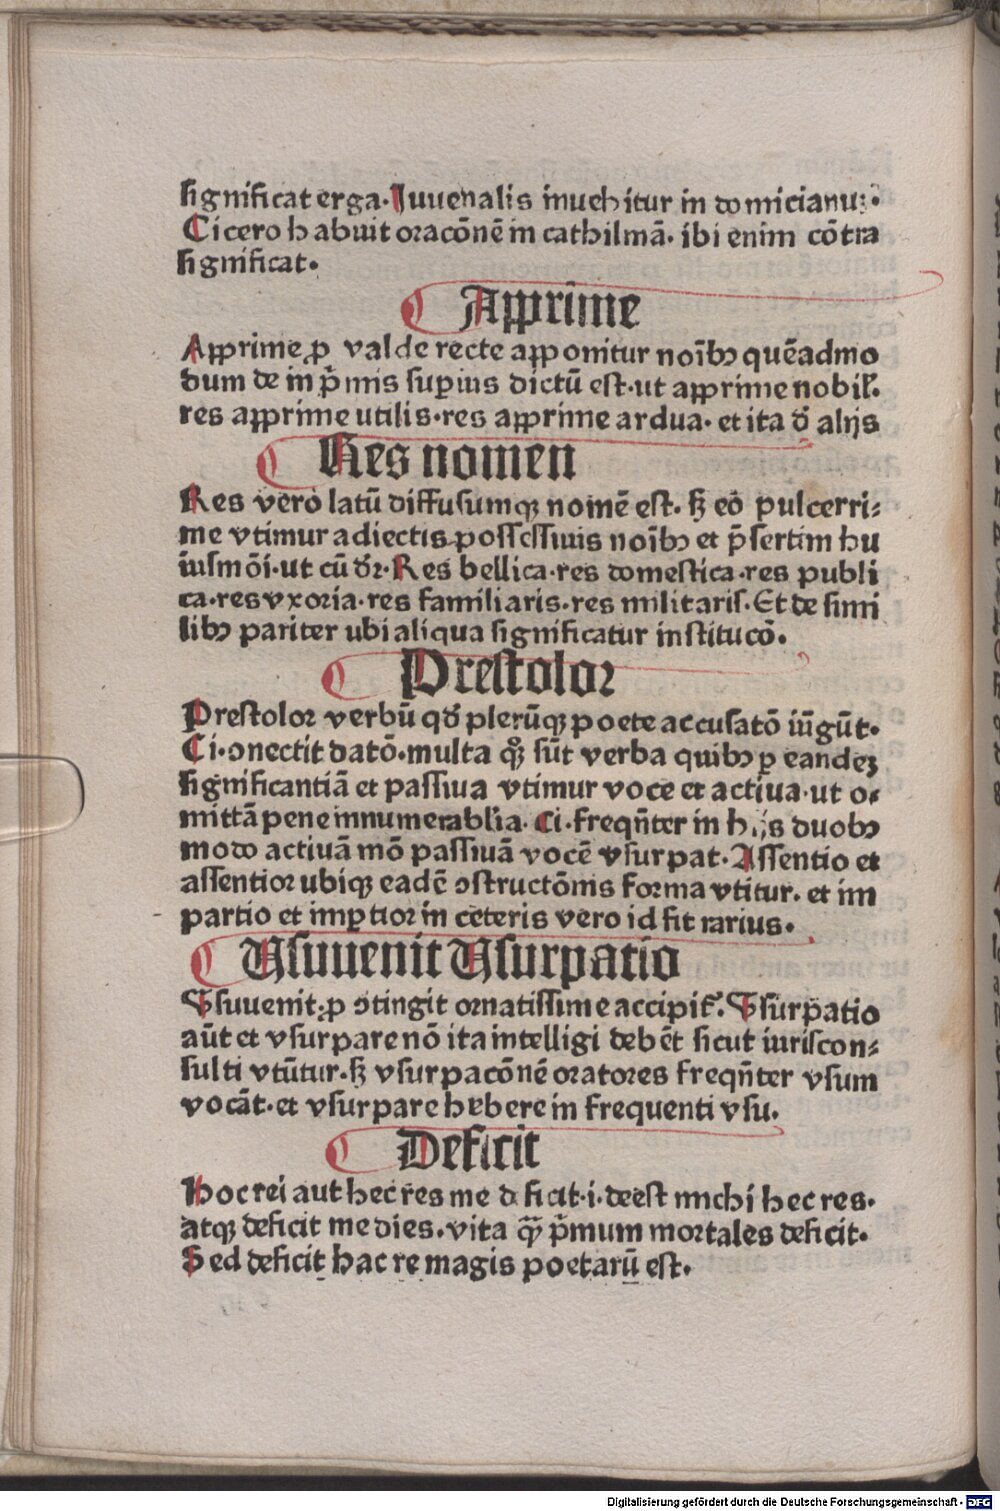 significat erga. Juuenalis inuehitur in domicianuꝫ.
Cicero habuit oracōnē in cathilinā. ibi enim cōtra
significat.
Apprime
Apprime ꝓ valde recte apponitur noībꝰ quēadmo
dum de in pͥmis suꝑius dictū est. ut apprime nobil̓.
res apprime utilis. res apprime ardua. et ita đ alijs
Res nomen
Res vero latū diffusumqꝫ nomē est. sꝫ eō pulcerri⸗
me vtimur adiectis possessiuis noībꝰ et p̄sertim hu
iusmōi. ut cū dr̄. Res bellica. res domestica. res publi
ca. res vxoria. res familiaris. res militaris. Et de simi
libꝰ pariter ubi aliqua significatur institucō.
Prestolor
Prestolor verbū qđ plerūqꝫ poete accusatō iūgūt.
Ci. ꝯnectit datō. multa qͦꝫ sūt verba quibꝰ ꝑ eandeꝫ
significantiā et passiua vtimur voce et actiua. ut o⸗
mittā pene innumerabl̓ia. Ci. freqn̄ter in hijs duobꝰ
modo actiuā mō passiuā vocē vsurpat. Assentio et
assentior ubiqꝫ eadē ꝯstructōnis forma vtitur. et im
partio et imꝑtior in ceteris vero id fit rarius.
Usuuenit Usurpatio
Usuuenit ꝓ ꝯtingit ornatissime accipit̄. Usurpatio
aūt et vsurpare nō ita intelligi debēt sicut iuriscon⸗
sulti vtūtur. sꝫ vsurpacōnē oratores freqn̄ter vsum
vocāt. et vsurpare habere in frequenti vsu.
Deficit
Hoc rei aut hec res me deficit. i. deest michi hec res.
atqꝫ deficit me dies. vita qͣꝫ pͥmum mortales deficit.
Sed deficit hac re magis poetarū est.
Digitalisierung gefördert durch die Deutsche Forschungsgemeinschaft - DFG